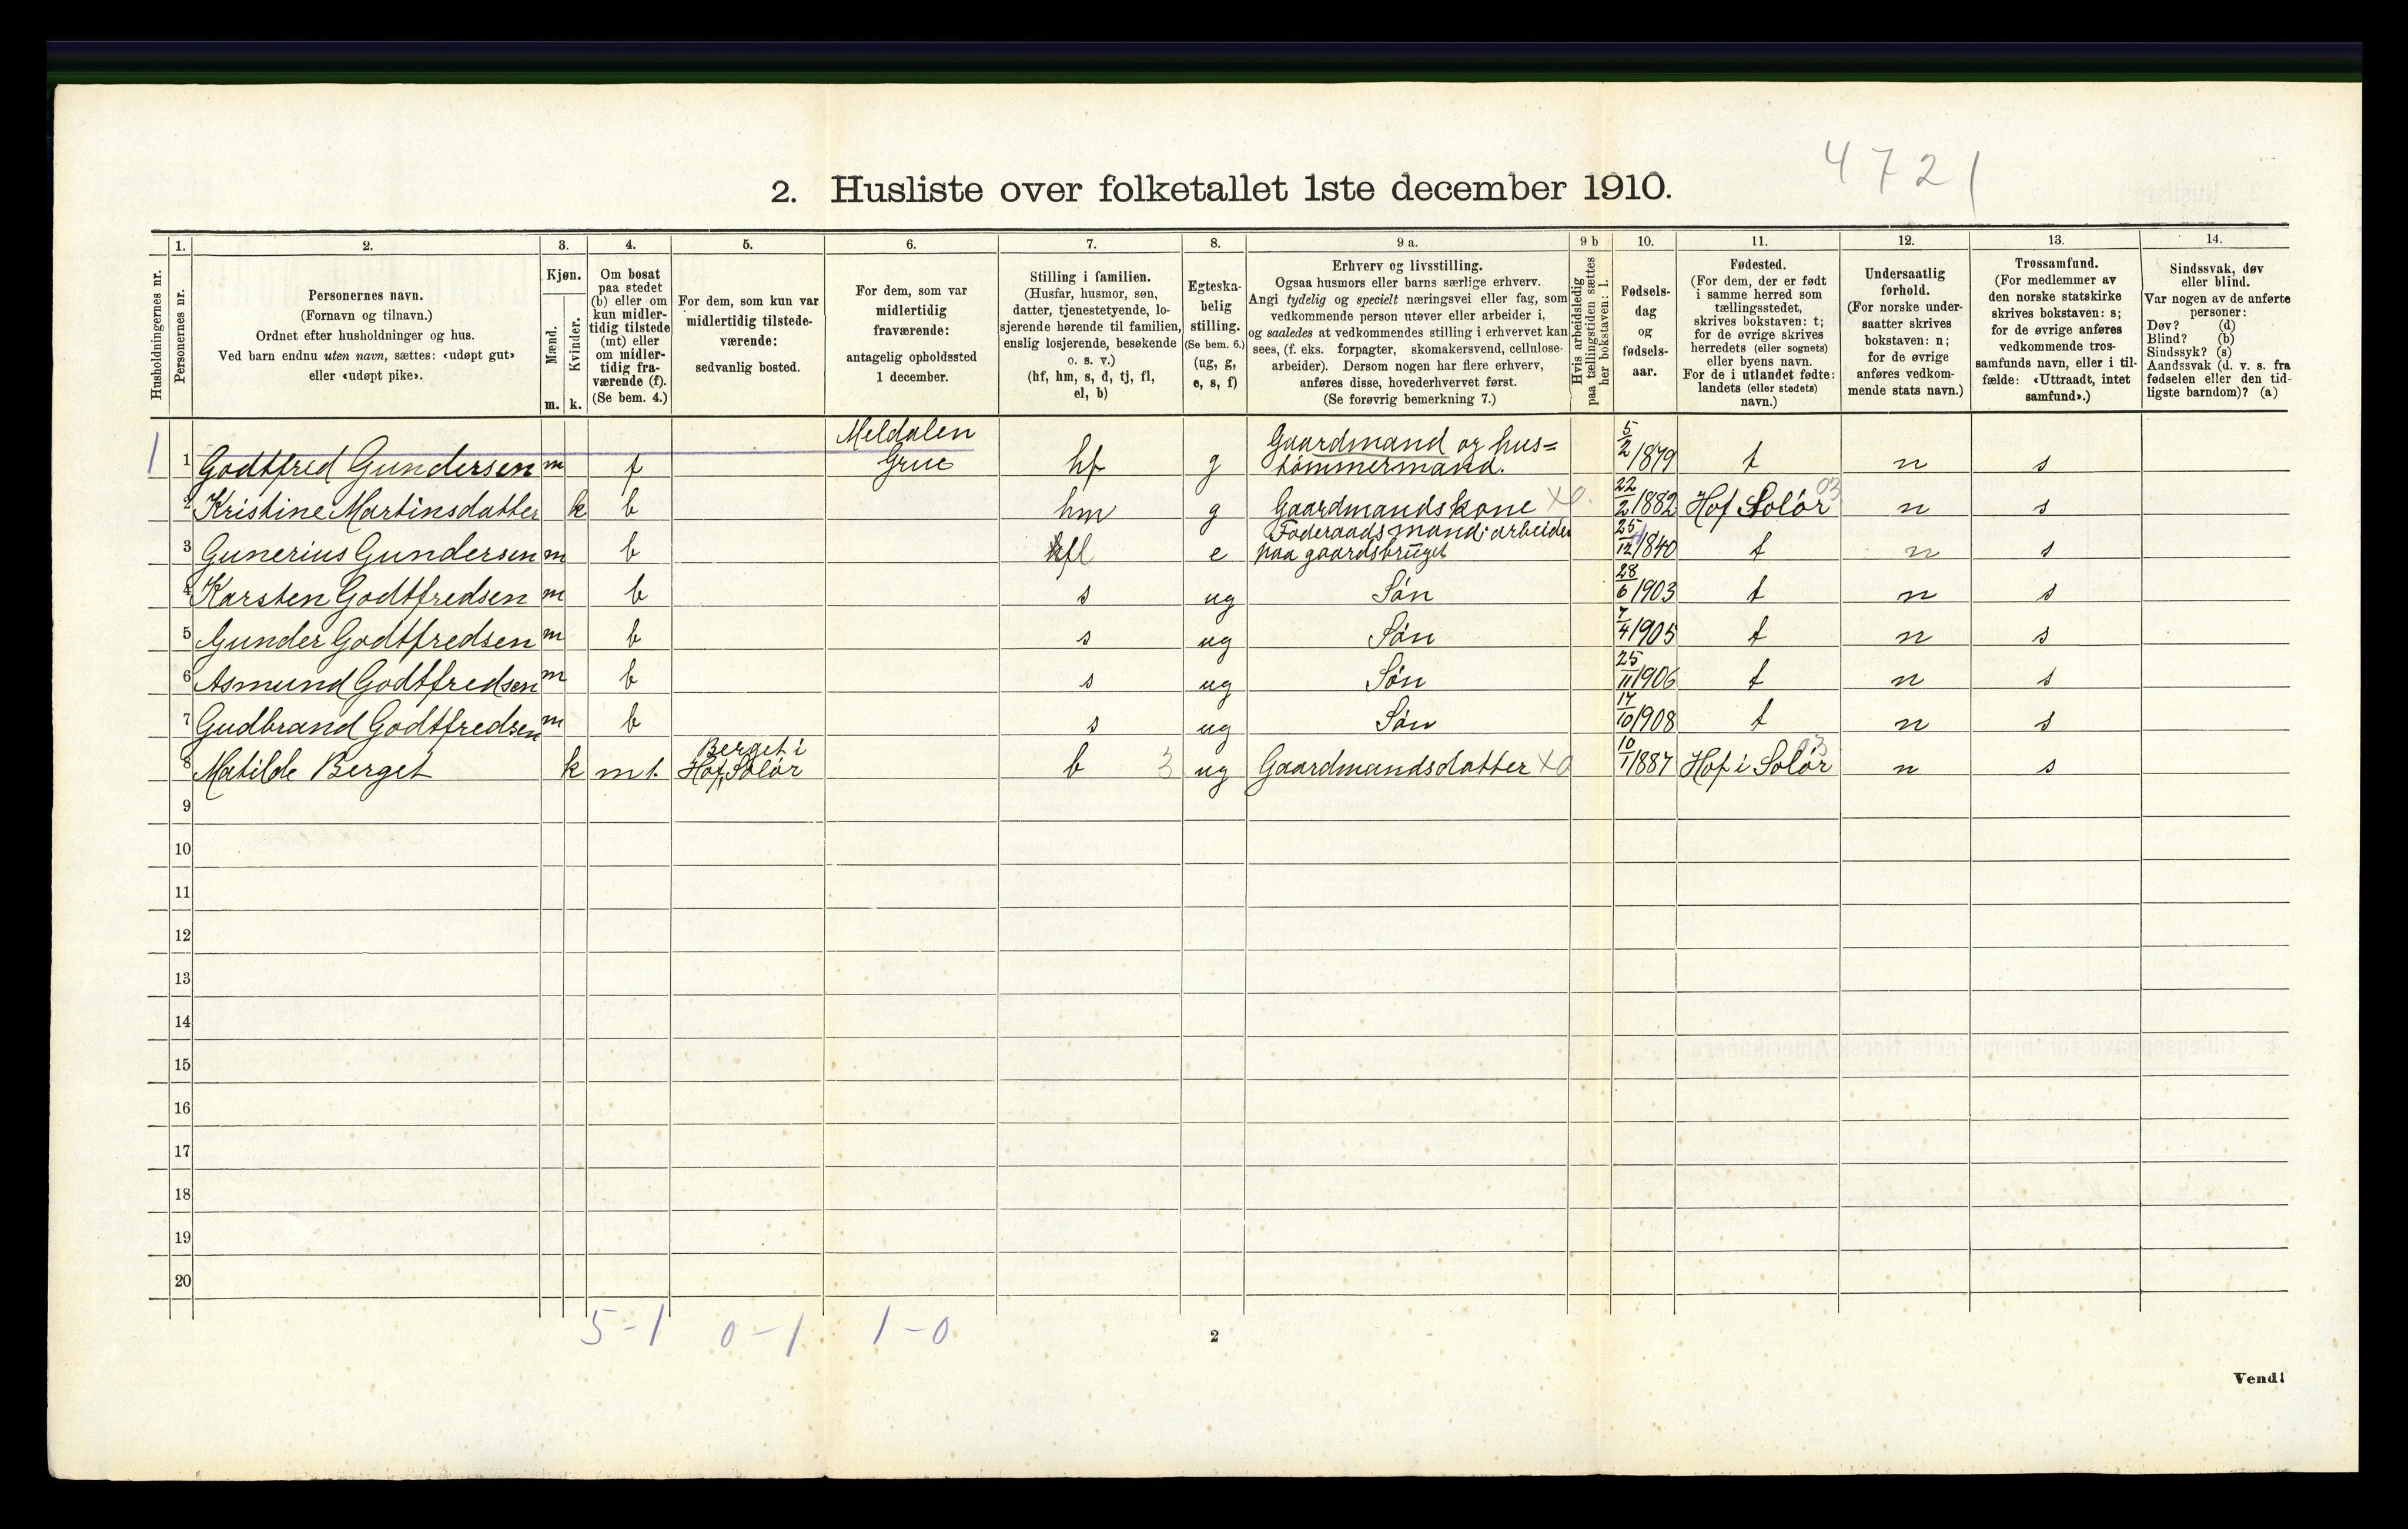 4721
2. Husliste over folketallet 1ste december 1910.
Husholdningernes nr.
1.
Personernes nr.
2.
Personernes navn.
(Fornavn og tilnavn.)
Ordnet efter husholdninger og hus.
Ved barn endnu uten navn, sættes: «udøpt gut»
eller «udøpt pike».
3.
Kjøn.
Mænd.
Kvinder.
m. k.
4.
Om bosat
paa stedet
(b) eller om
kun midler-
tidig tilstede
(mt) eller
om midler-
tidig fra-
værende (f).
(Se bem. 4.)
5.
For dem, som kun var
midlertidig tilstede-
værende:
sedvanlig bosted.
6.
For dem, som var
midlertidig
fraværende:
antagelig opholdssted
1 december.
7.
Stilling i familien.
(Husfar, husmor, søn,
datter, tjenestetyende, lo-
sjerende hørende til familien,
enslig losjerende, besøkende
o. s. v.)
(hf, hm, s, d, tj, fl,
el, b)
8.
Egteska-
belig
stilling.
(Se bem. 6.)
(ug, g,
e, s, f)
9 a.
Erhverv og livsstilling.
Ogsaa husmors eller barns særlige erhverv.
Angi tydelig og specielt næringsvei eller fag, som
vedkommende person utøver eller arbeider i,
og saaledes at vedkommendes stilling i erhvervet kan
sees, (f. eks. forpagter, skomakersvend, cellulose-
arbeider). Dersom nogen har flere erhverv,
anføres disse, hovederhvervet først.
(Se forøvrig bemerkning 7.)
9 b
Hvis arbeidsledig
paa tællingstiden sættes
her bokstaven: l.
10.
Fødsels-
dag
og
fødsels-
aar.
11.
Fødested.
(For dem, der er født
i samme herred som
tællingsstedet,
skrives bokstaven: t;
for de øvrige skrives
herredets (eller sognets)
eller byens navn.
For de i utlandet fødte:
landets (eller stedets)
navn.)
12.
Undersaatlig
forhold.
(For norske under-
saatter skrives
bokstaven: n;
for de øvrige
anføres vedkom-
mende stats navn.)
13.
Trossamfund.
(For medlemmer av
den norske statskirke
skrives bokstaven: s;
for de øvrige anføres
vedkommende tros-
samfunds navn, eller i til-
fælde: «Uttraadt, intet
samfund».)
14.
Sindssvak, døv
eller blind.
Var nogen av de anførte
personer:
Døv? (d)
Blind? (b)
Sindssyk? (s)
Aandssvak (d. v. s. fra
fødselen eller den tid-
ligste barndom)? (a)
Meldalen Gaardmand og hus=
1 1 Godtfred Gundersen m f Grue hf g tømmermand. 5/2 1879 t n s
2 Kristine Martinsdatter k b hm g Gaardmandskone X0. 22/2 1882 Hof Solør 03 n s
Føderaadsmand: arbeider
3 Gunerius Gundersen m b fl e paa gaardsbruget 25/12 1840 t n s
4 Karsten Godtfredsen m b s ug Søn 28/6 1903 t n s
5 Gunder Godtfredsen m b s ug Søn 7/4 1905 t n s
6 Asmund Godtfredsen m b s ug Søn 25/11 1906 t n s
7 Gudbrand Godtfredsen m b s ug Søn 17/10 1908 t n s
Berget i
8 Matilde Berget k mt. Hof, Solør b 3 ug Gaardmandsdatter X0 10/1 1887 Hof i Solør 03 n s
9
10
11
12
13
14
15
16
17
18
19
20
5-1 0-1 1-0
2
Vend!